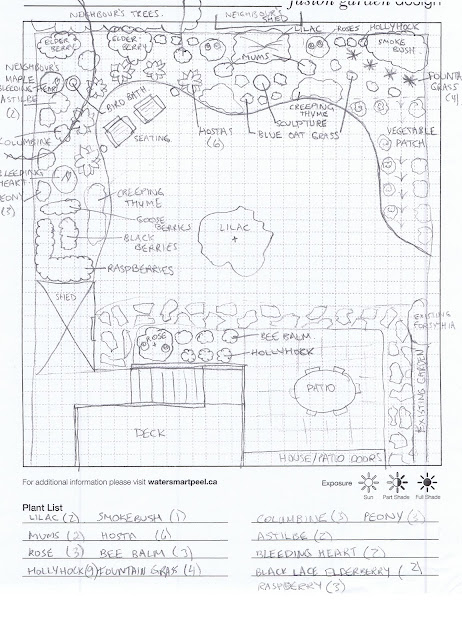 fusion garden design
NEIGHBOUR'S TREES.
NEIGHBOUR'S
SHED
LILAC
ROSES
HOLLYHOCK
ELDER
BERRY
ELDER-
BERRY
MUMS
SMOKE
BUSH
NEIGHBOUR'S
MAPLE
BLEEDING HEART
ASTILBE
(2)
BIRD BATH
FOUNTAIN
GRASS
(4)
CREEPING
THYME
SCULPTURE
HOSTAS
(6)
BLUE OAT GRASS
VEGETABLE
PATCH
COLUMBINE
SEATING
BLEEDING
HEART
PEONY
(3)
CREEPING
THYME
GOOSE
BERRIES
BLACK
BERRIES
RASPBERRIES
LILAC
+
SHED
EXISTING
FORSYTHIA
ROSE
BEE BALM
HOLLYHOCK
PATIO
EXISTING GARDEN
DECK
HOUSE/PATIO DOORS
For additional information please visit watersmartpeel.ca
Exposure
Sun
Part Shade
Full Shade
Plant List
LILAC (2) SMOKEBUSH (1)
COLUMBINE (3) PEONY
MUMS (2) HOSTA (6)
ASTILBE (2)
ROSE (3) BEE BALM (3)
BLEEDING HEART (7)
HOLLYHOCK (9) FOUNTAIN GRASS (4)
BLACK LACE ELDERBERRY (2)
RASPBERRY (3)